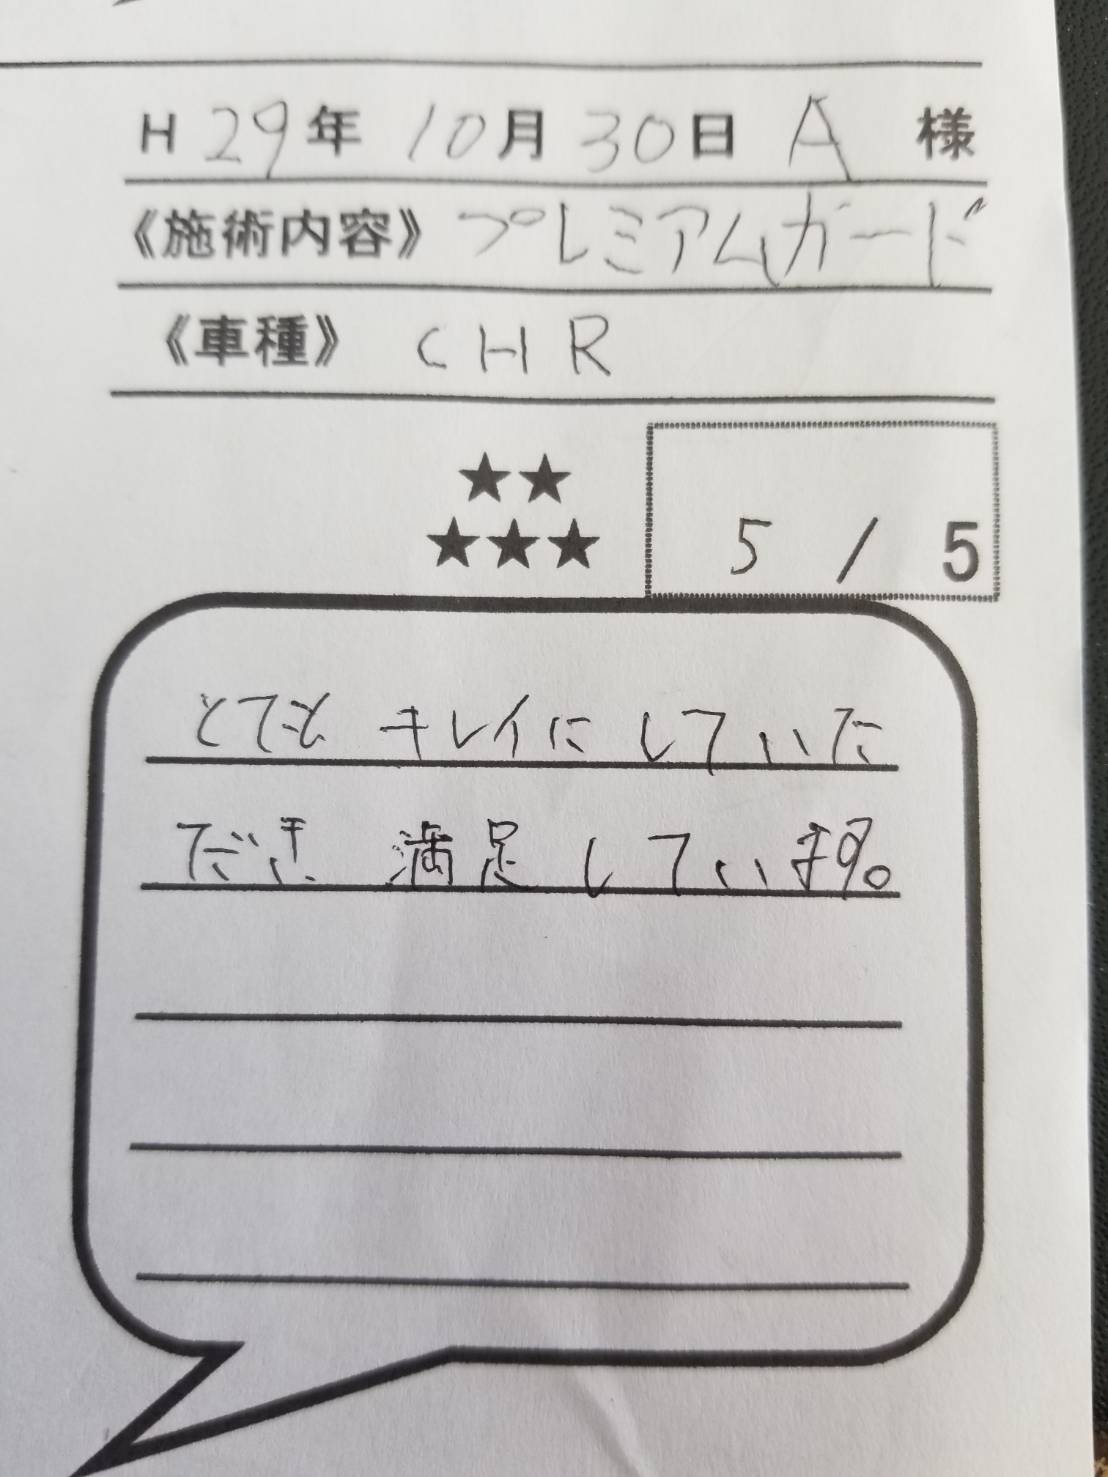 H 29年 10月 30日 A 様
《施術内容》 プレミアムガード
《車種》 CHR
★★
★★★ 5 / 5
とても キレイに していた
だき 満足 しています。